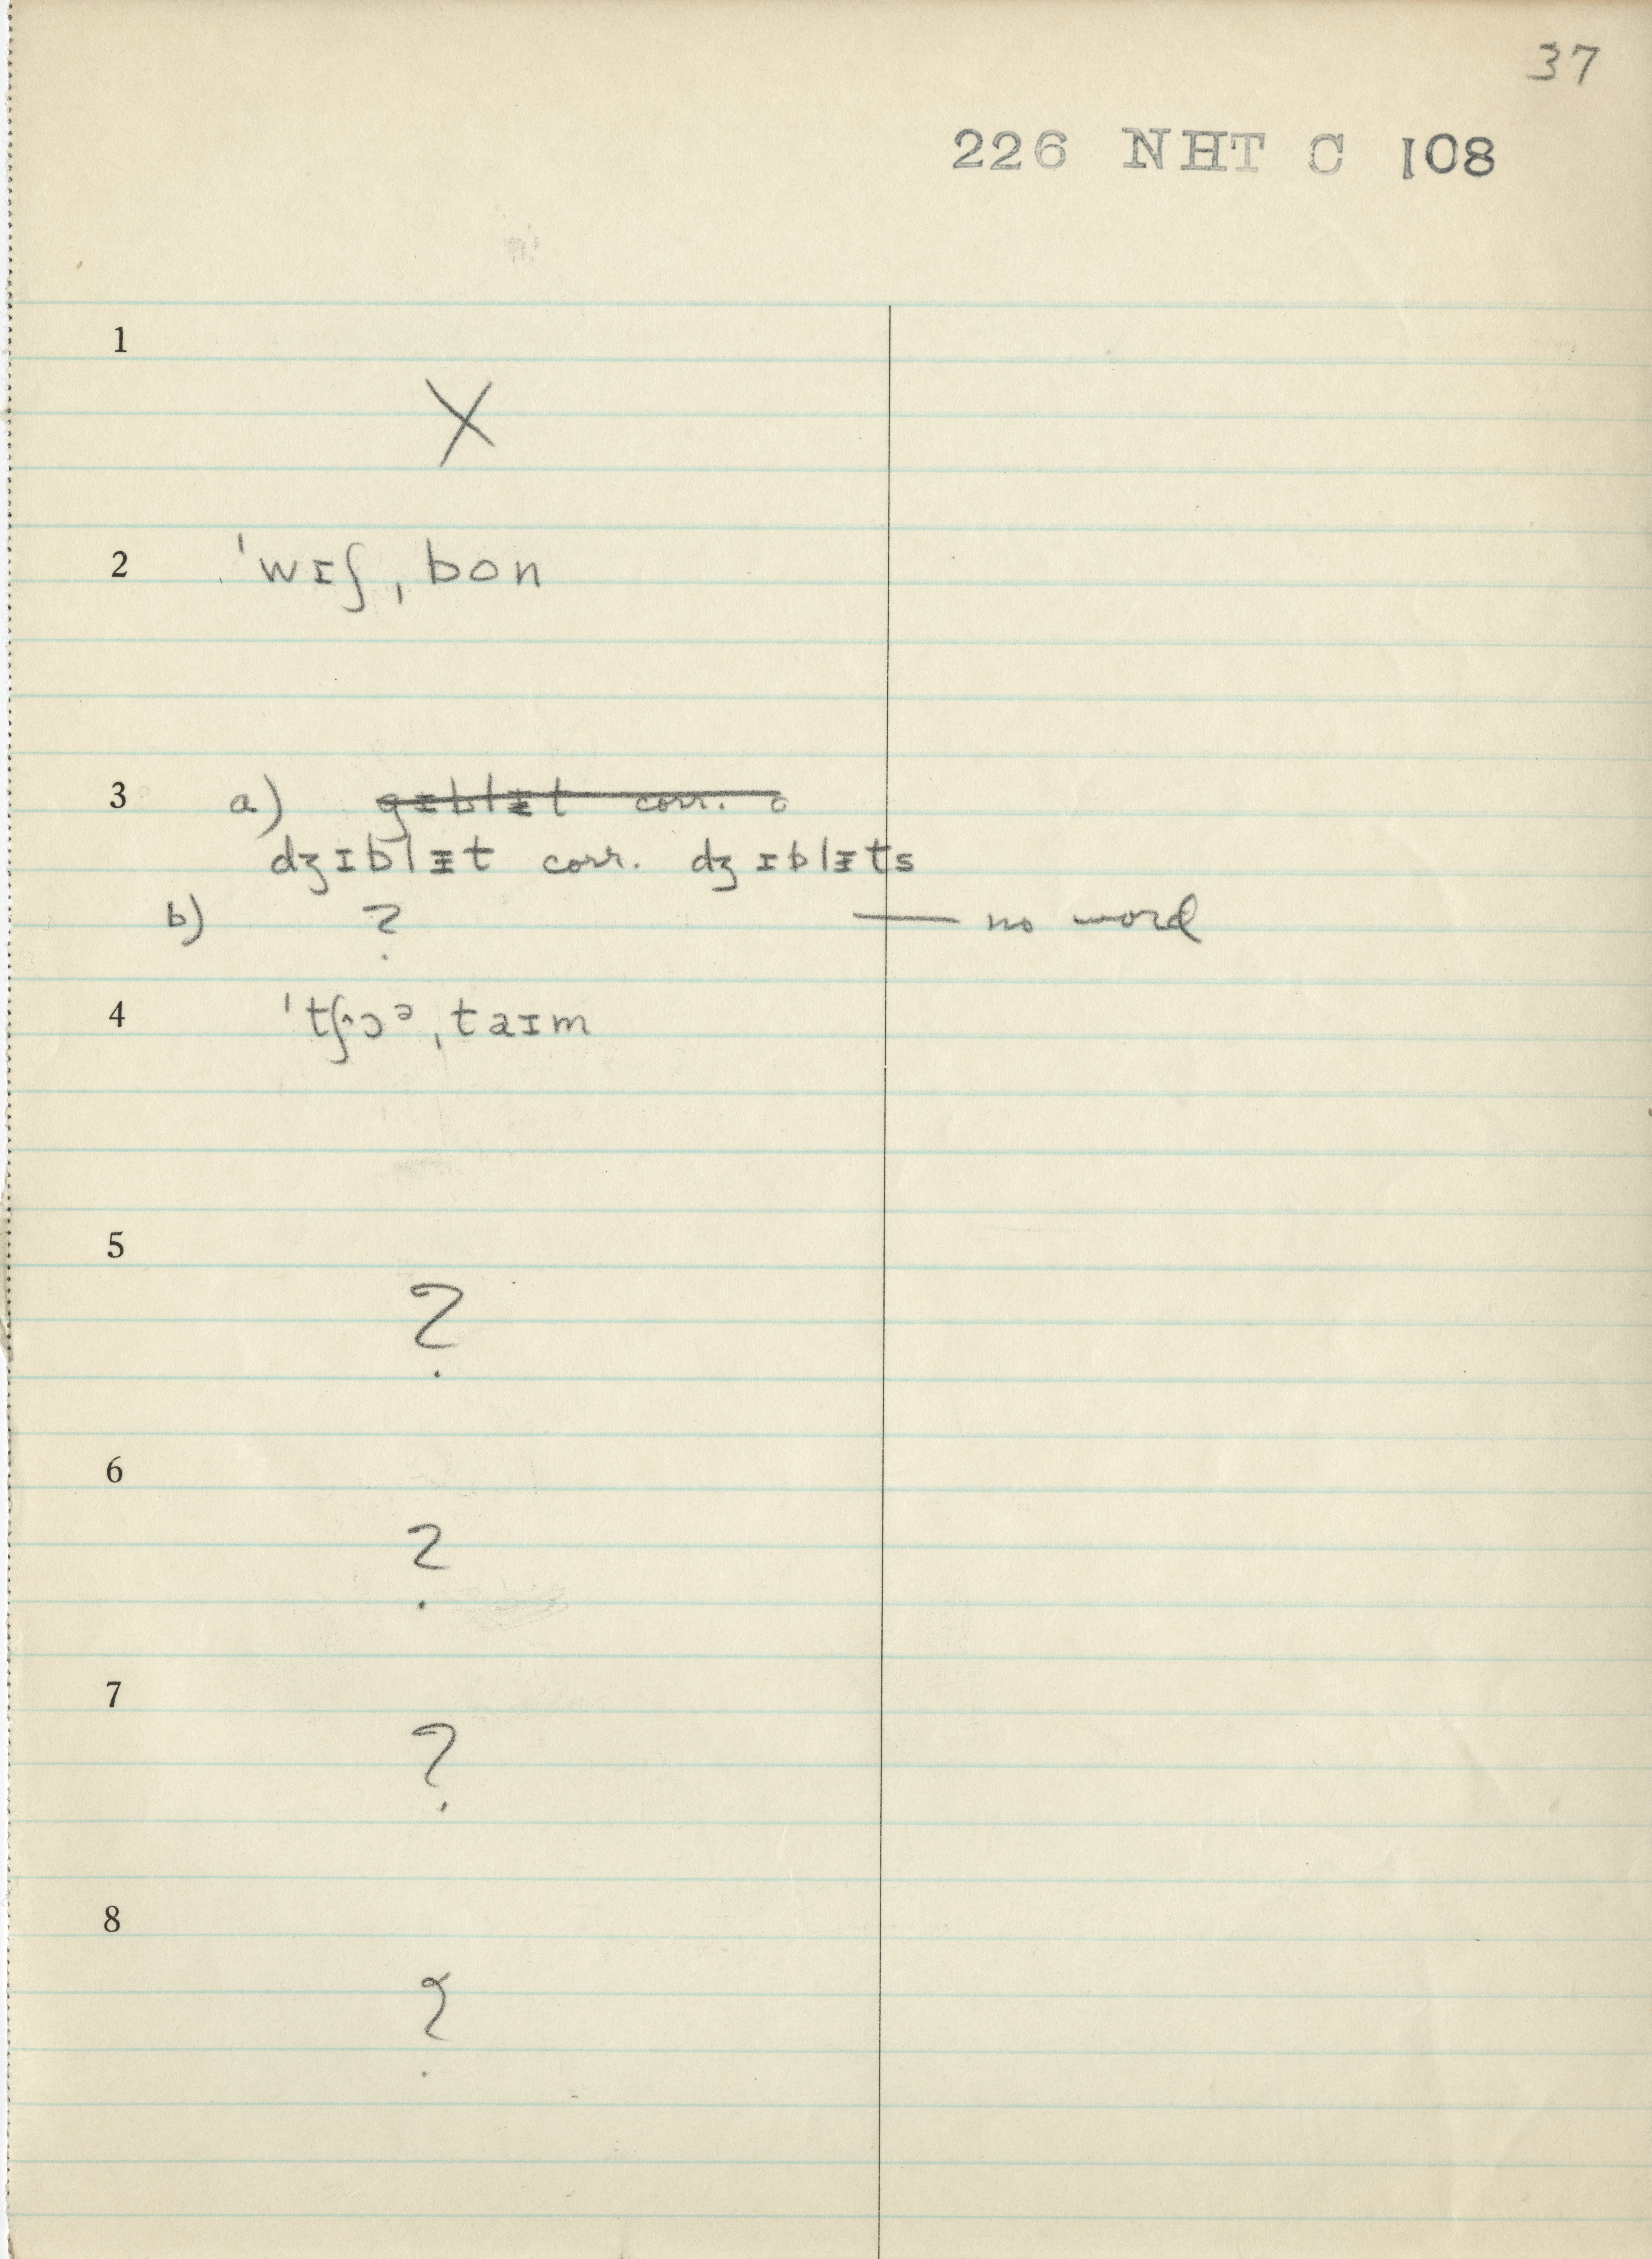 37
226 NHT C 108
1
X
2 ˈwɪʃ ˌbon
3 a) gɪblᵻt corr.
dʒɪblᵻt corr. dʒɪblᵻts
b) ? — no word
4 ˈtʃɔᵊ ˌtaɪm
5
?
6
?
7
?
8
?